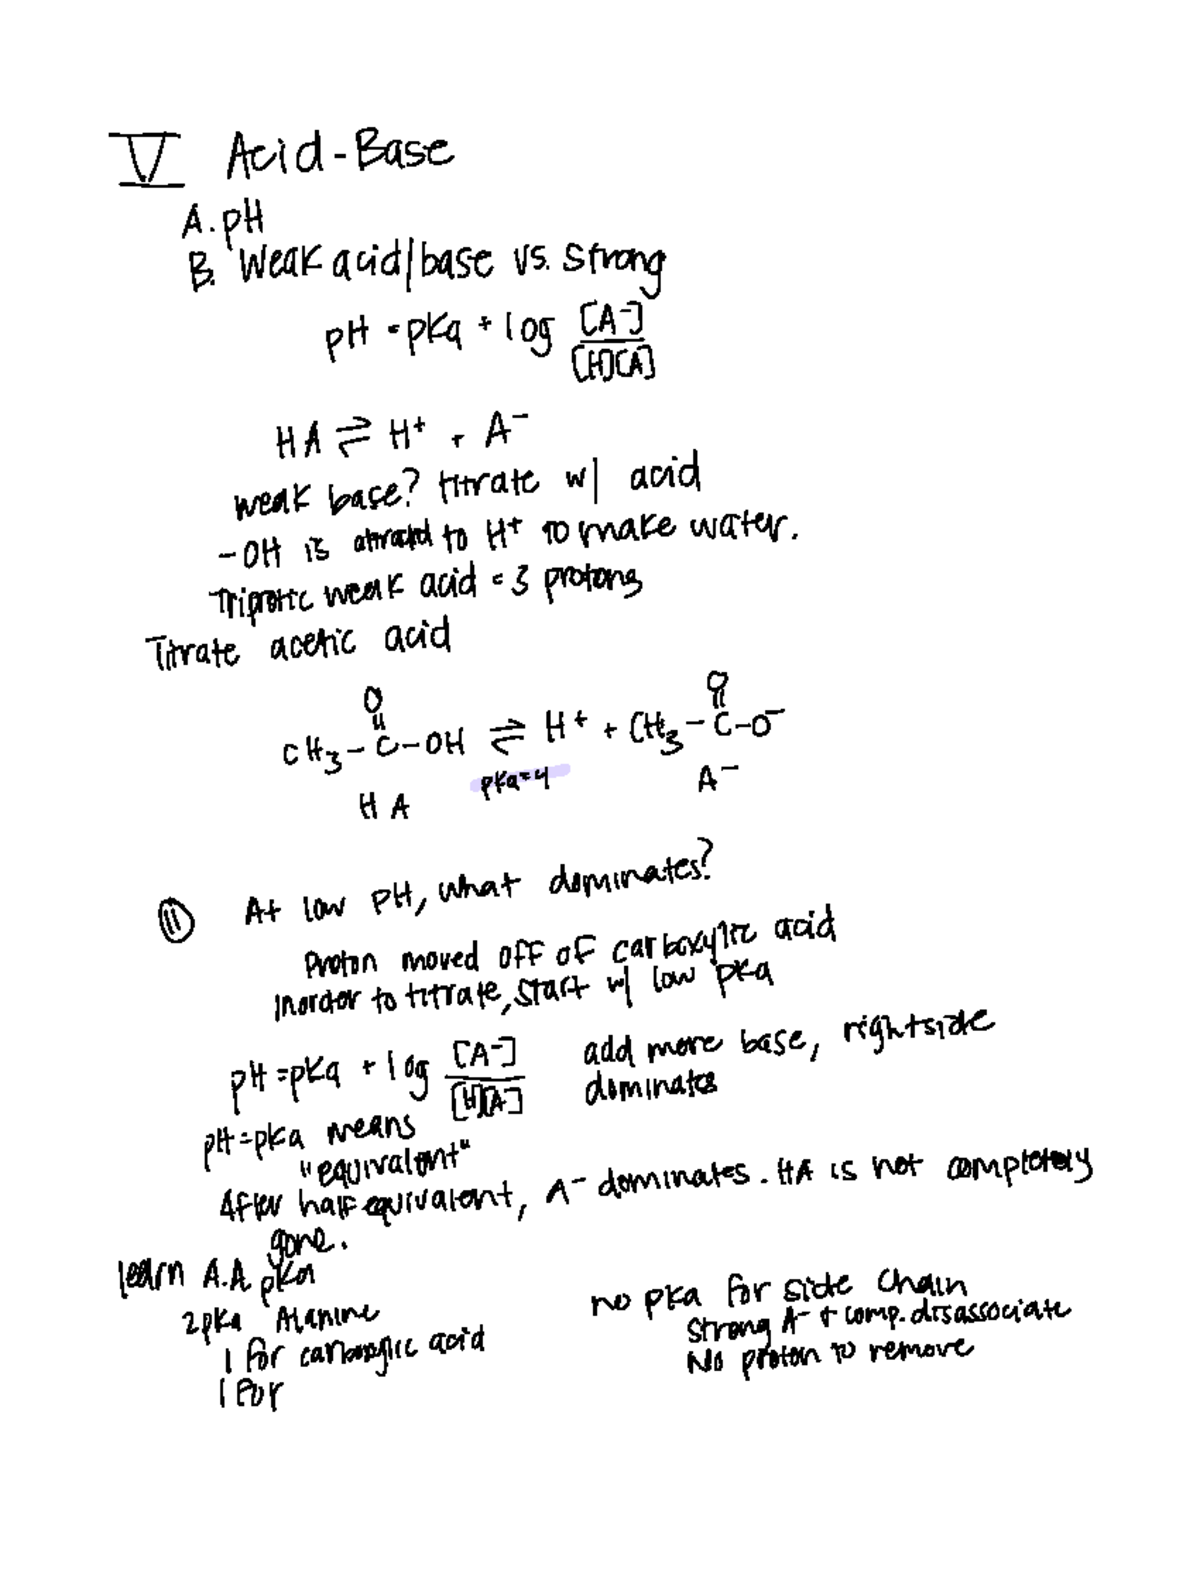 V Acid-Base
A. pH
B. Weak acid/base vs. strong
pH = pKa + log [A-]/[H][A]
HA ⇌ H+ + A-
weak base? titrate w/ acid
-OH is attracted to H+ to make water.
Triprotic weak acid = 3 protons
Titrate acetic acid
O O
CH3-C-OH ⇌ H+ + CH3-C-O-
pKa=4
HA A-
11 At low pH, what dominates?
Proton moved off of carboxylic acid
Inorder to titrate, start w/ low pKa
pH=pKa + log [A-]/[H][A] add more base, rightside
dominates
pH=pKa means
"equivalent"
After half equivalent, A- dominates. HA is not completely
gone.
learn A.A. pKa
2pKa Alanine
1 for carboxylic acid
1 for
no pKa for side chain
Strong A- + comp. disassociate
No proton to remove